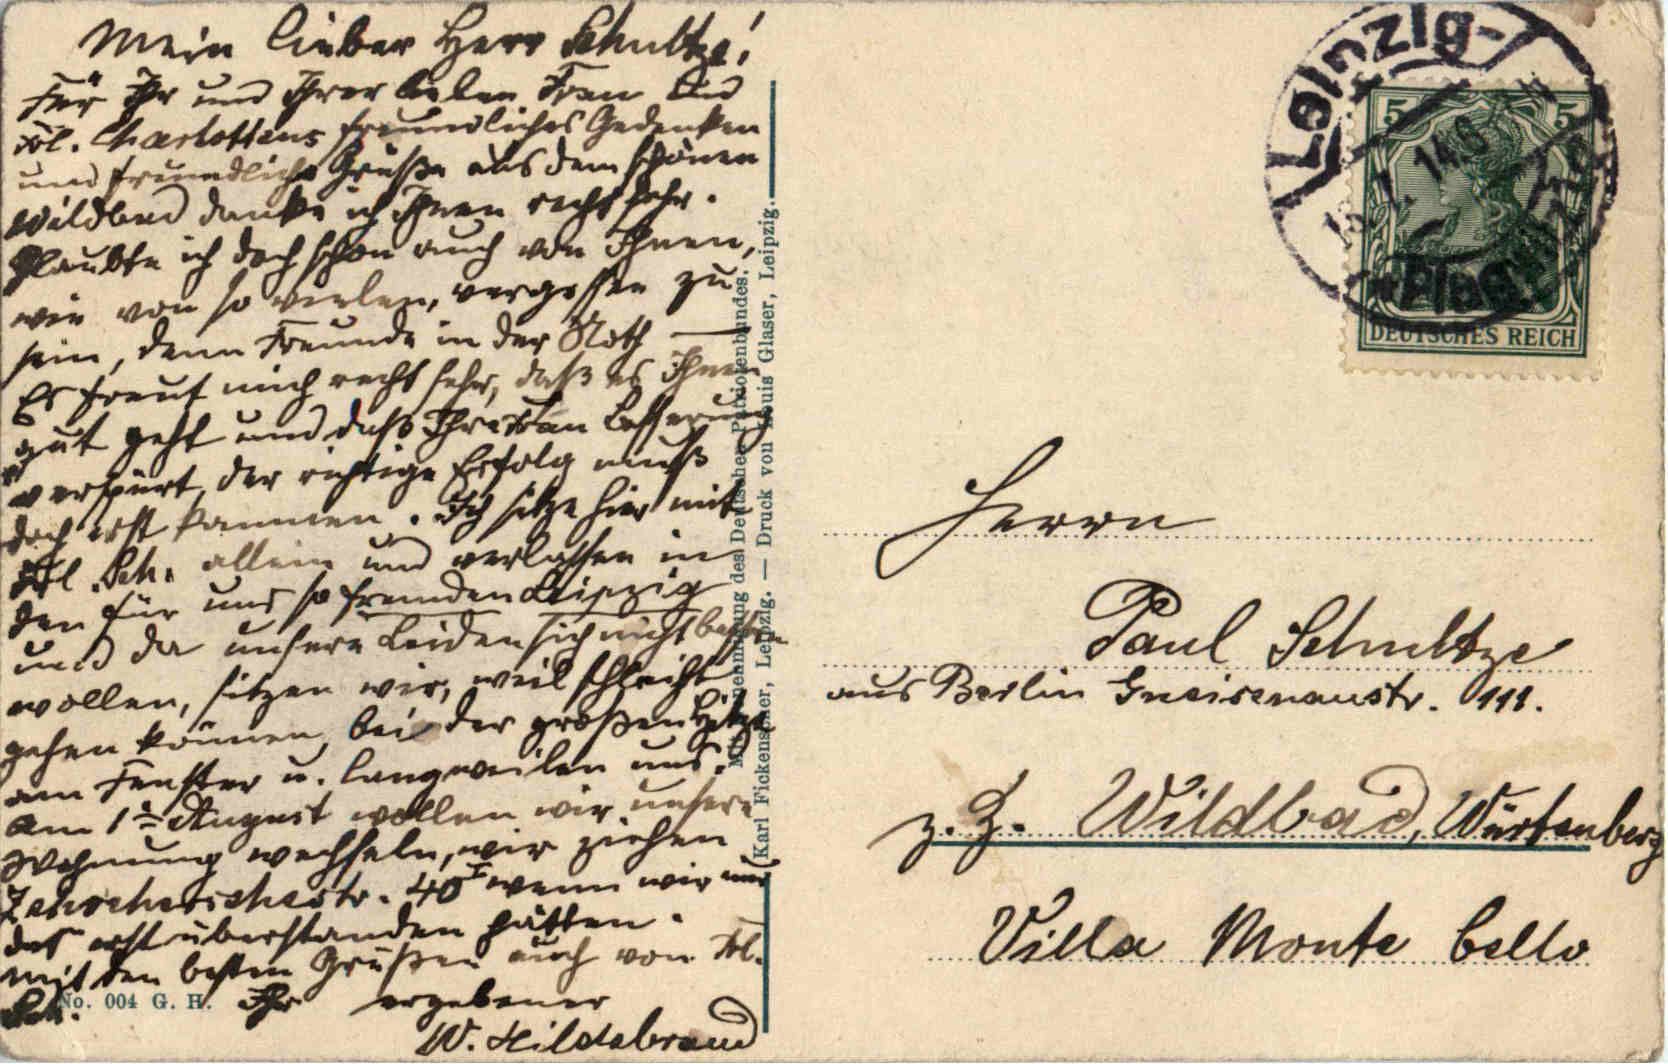 Mein lieber Herr Schultze!
Für Ihr und Ihrer lieben Frau und
Frl. Charlottens freundliches Gedenken
und freundliche Grüße aus dem schönen
Wildbad danke ich Ihnen recht sehr.
Glaubte ich doch schon auch von Ihnen,
wie von so vielen, vergessen zu
sein, denn Freunde in der Noth —
Es freut mich recht sehr, daß es Ihnen
gut geht und daß Ihre Frau Besserung
verspürt, der richtige Erfolg muß
doch erst kommen. Ich sitze hier mit
Frl. Sch. allein und verlassen in
den für uns so fremden Leipzig
und da unsere Leiden sich nicht bessern
wollen, sitzen wir, weil schlecht
gehen können, bei der großen Hitze
am Fenster u. langweilen uns.
Am 1ᵗ August wollen wir unsere
Wohnung wechseln, wir ziehen
40ᴵ wenn wir nur
das erst überstanden hätten.
Mit den besten Grüßen auch von Frl.
Sch. Ihr ergebener
W. Hildebrand
No. 004 G. H.
Mit Genehmigung des Deutschen Patriotenbundes.
Karl Fickenscher, Leipzig. — Druck von Louis Glaser, Leipzig.
Leipzig-
14.
5 5
DEUTSCHES REICH
Herrn
Paul Schultze
aus Berlin Gneisenaustr. 111.
z. Z. Wildbad, Würtenberg
Villa Monte bello